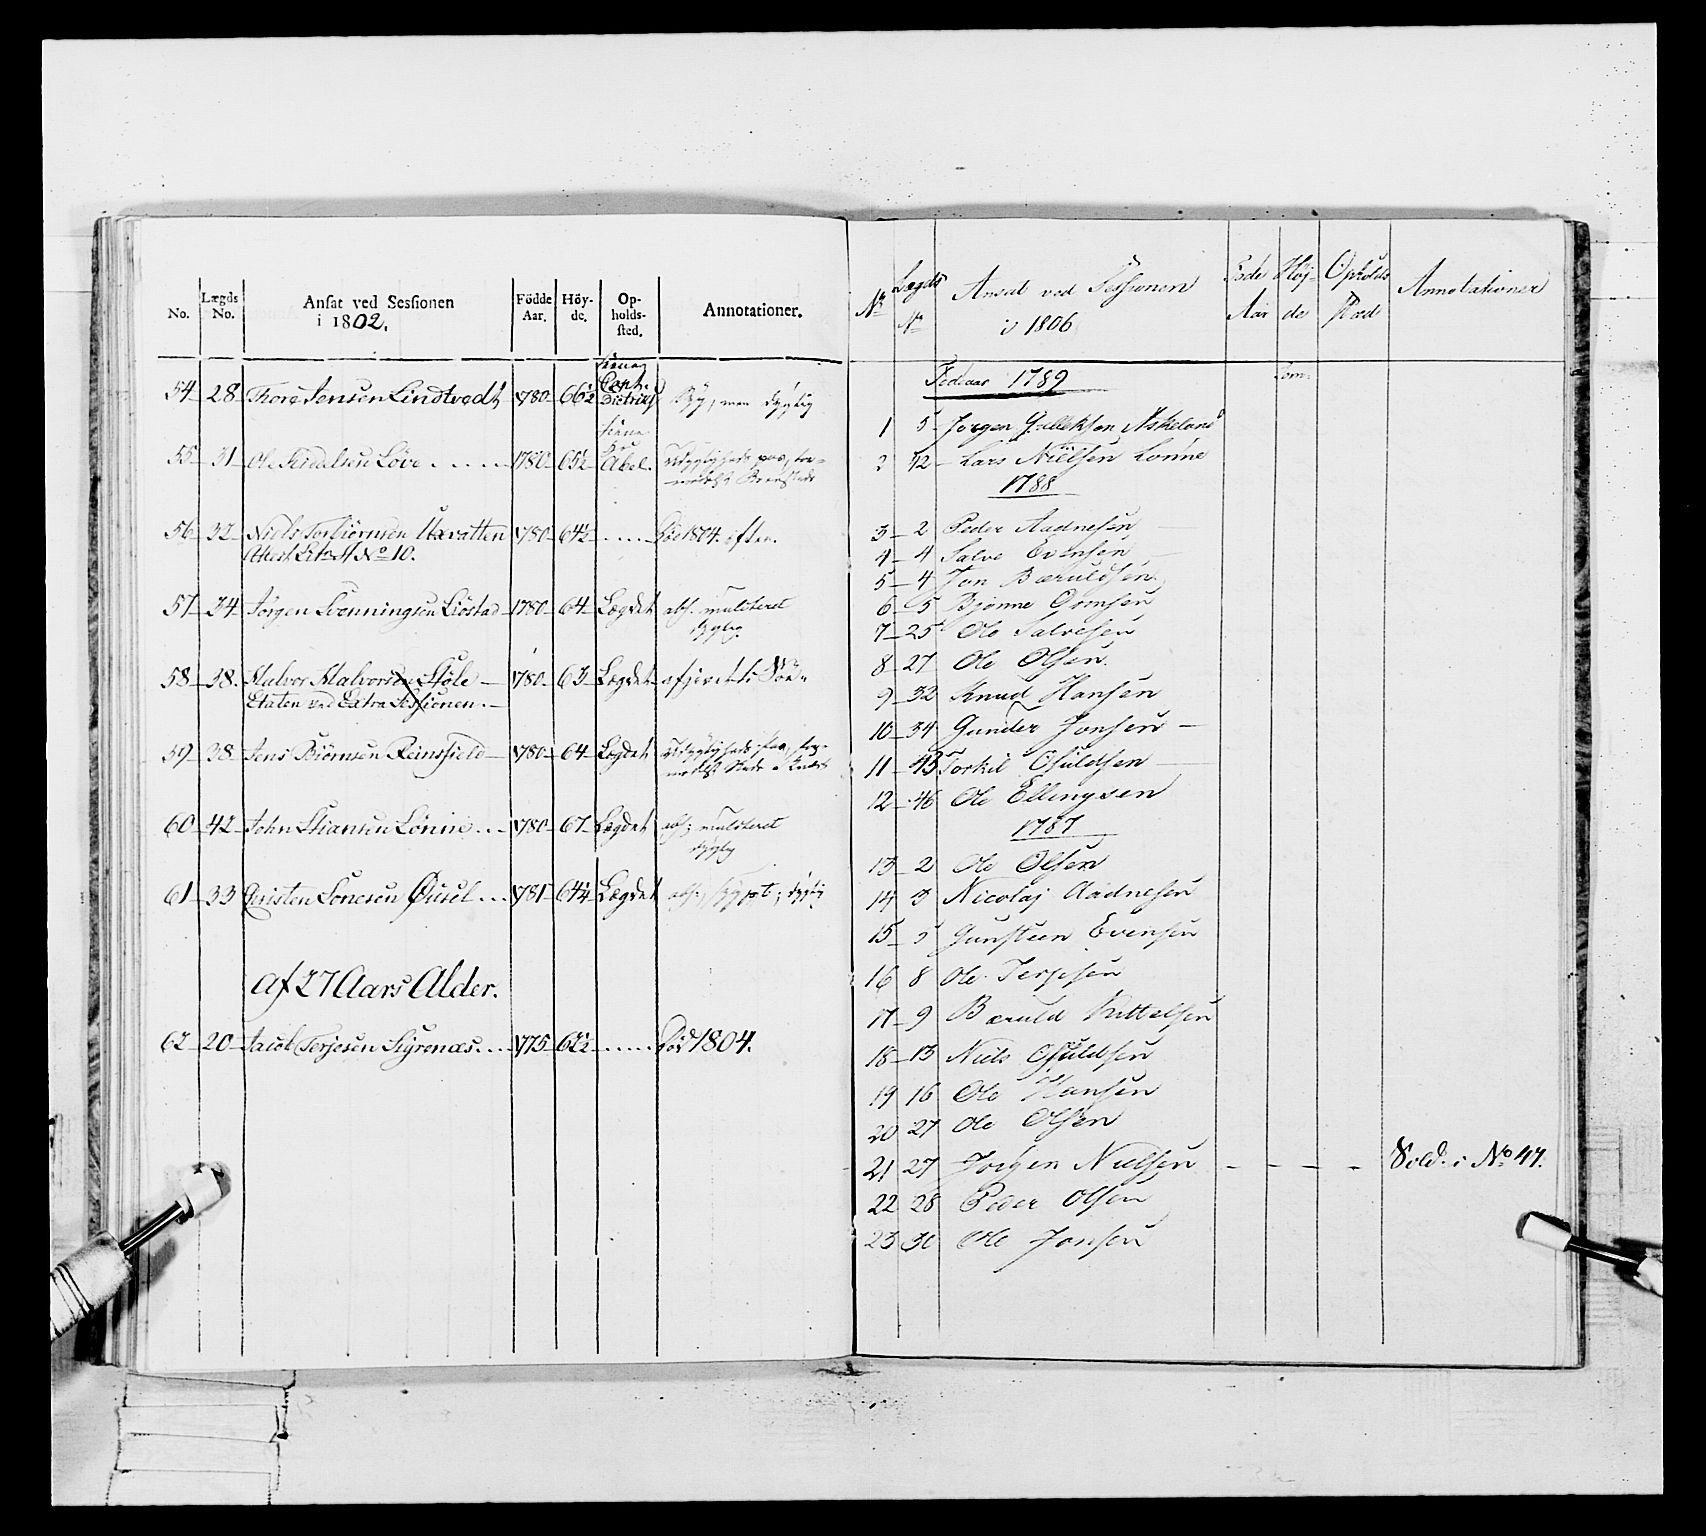 No. Lægds No. Ansat ved Sessionen i 1802. Födde Aar. Höyde. Opholdssted. Annotationer.
54 28 Thore Jensen Lindtvedt 1780 66½ Capt. Dietrix men dygtig
55 31 Ole Tredelsen Løve . . . . . 1780 65½ Abel.
56 32 Niels Torbiørnsen Uxvatten 1780 64½ . . . . . Død 1804.
No 10.
57 34 Jørgen Svenningsen Liøstad 1780 64 Lægdet
58 38. Halvor Halvorsen Støle 1780 63 Lægdet
Etaten ved Extra Sessionen.
59 38 Jens Biørnsen Reinsfield 1780 64 Lægdet
60 42 John Stiansen Lønne . . . 1780 67 Lægdet
61 33 Christen Lonesen Øusel . . . 1781 64¼ Lægdet
Af 27 Aars Alder.
62 20 Jacob Terjesen Skyrenæs . . . . 1775 62½ . . . . . Død 1804.
No Lægds No Ansat ved Sessionen i 1806 Føde Aar Høyde Opholds Stæd Annotationer
Fødeaar 1789
1 5 Jørgen Gullekson Askeland
2 42 Lars Nielsen Lønne
1788
3 2 Peder Aadnesen
4 4 Salve Evensen
5 4 Jon Bæruldsen
6 5 Bjønne Ormsen
7 25 Ole Salvesen
8 27 Ole Olsen
9 32 Knud Hansen
10 34 Gunder Jonsen
11 43 Torkil Osuldsen
12 46 Ole Ellingsen
1787
13 2 Ole Olsen
14 3 Nicolaj Aadnesen
15 5 Gunsteen Evensen
16 8 Ole Terjesen
17 9 Bæruld Kittelsen
18 13 Niels Osuldsen
19 16 Ole Hansen
20 27 Ole Olsen
21 27 Jørgen Nielsen Sold. i No 47.
22 28 Peder Olsen
23 30 Ole Jonsen